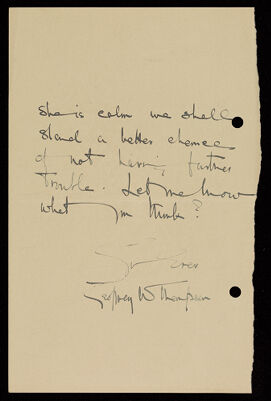 she is calm we shall
stand a better chance
of not having further
trouble. Let me know
what you think?
Geoffrey W Thompson